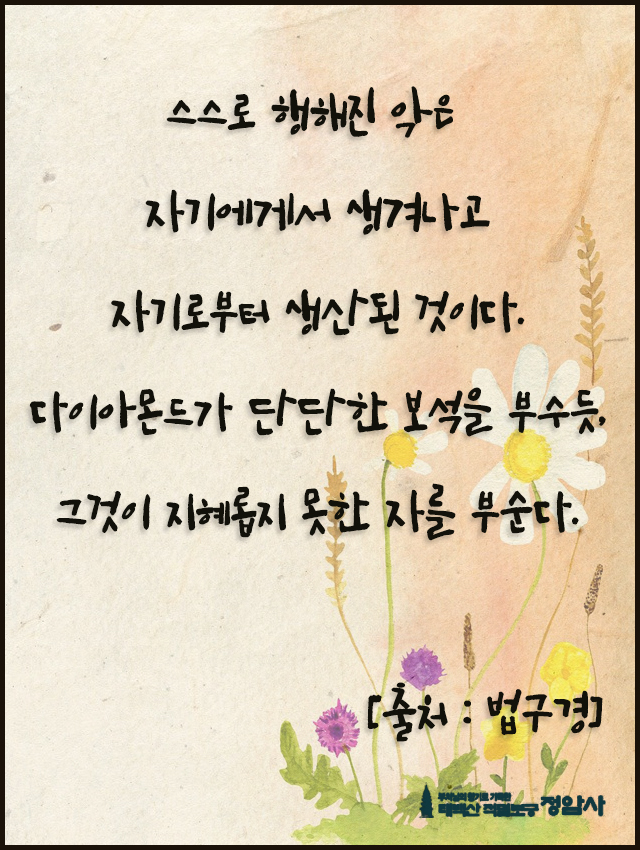 스스로 행해진 악은
자기에게서 생겨나고
자기로부터 생산된 것이다.
다이아몬드가 단단한 보석을 부수듯,
그것이 지혜롭지 못한 자를 부순다.
[출처 : 법구경]
태백산 적멸보궁 정암사